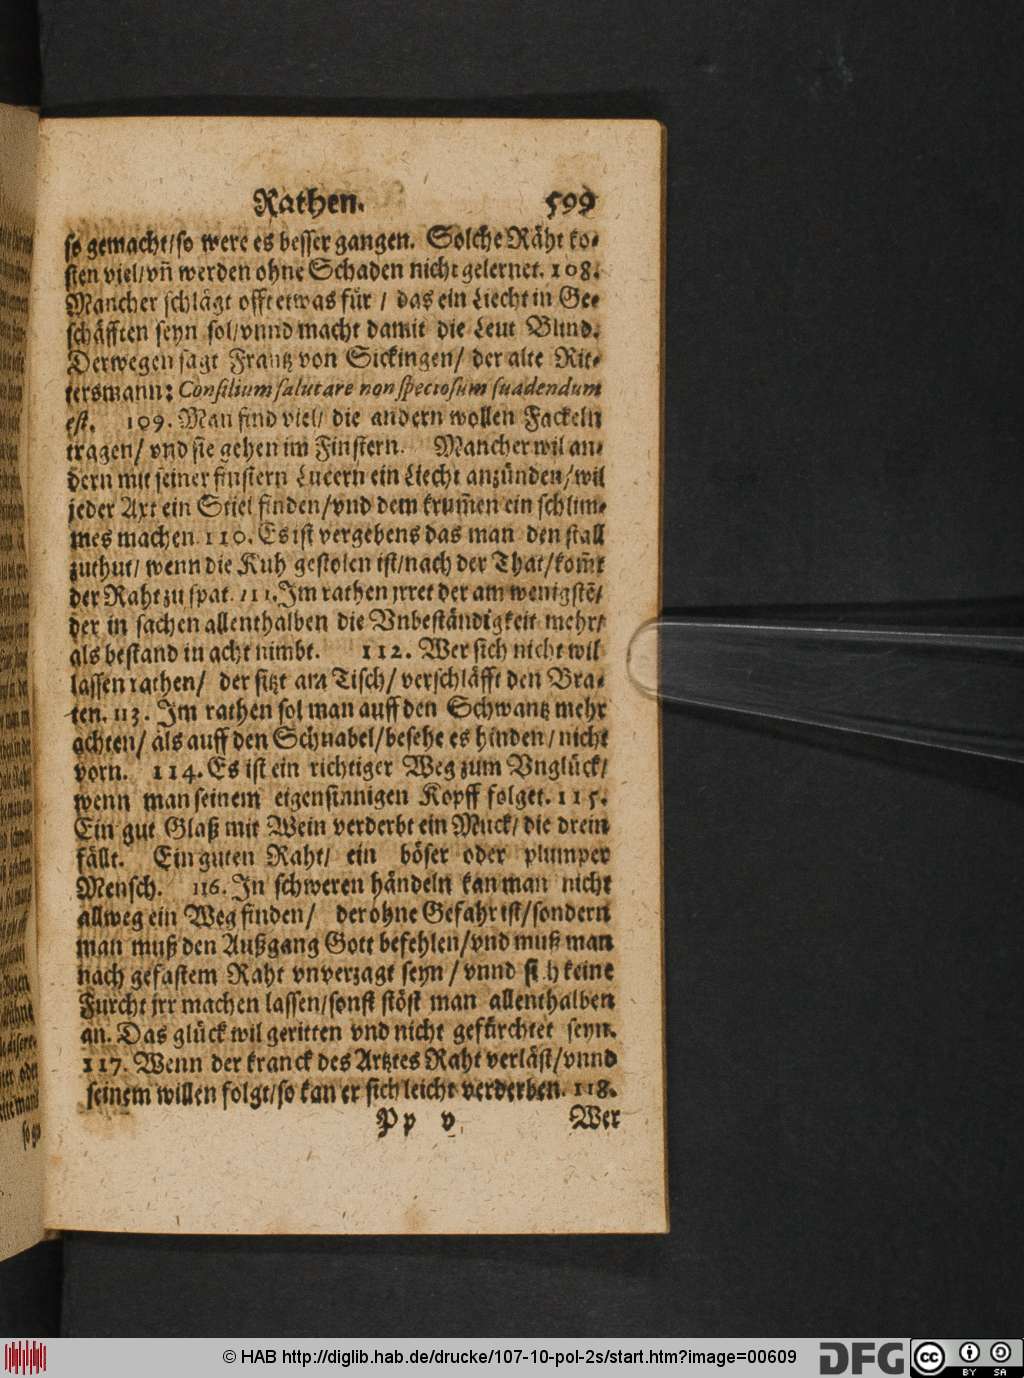 Rathen. 599
so gemacht/so were es besser gangen. Solche Räht ko-
sten viel/vñ werden ohne Schaden nicht gelernet. 108.
Mancher schlägt offt etwas für / das ein Liecht in Ge-
schäfften seyn sol/vnnd macht damit die Leut Blind.
Derwegen sagt Frantz von Sickingen/ der alte Rit-
tersmann: Consilium salutare non speciosum suadendum
est. 109. Man find viel/ die andern wollen Fackeln
tragen/ vnd sie gehen im Finstern. Mancher wil an-
dern mit seiner finstern Lucern ein Liecht anzünden/wil
jeder Axt ein Stiel finden/vnd dem krum̃en ein schlim-
mes machen. 110. Es ist vergebens das man den stall
zuthut/ wenn die Kuh gestolen ist/nach der That/kom̃t
der Raht zu spat. 111. Im rathen jrret der am wenigstẽ/
der in sachen allenthalben die Vnbeständigkeit mehr/
als bestand in acht nimbt. 112. Wer sich nicht wil
lassen rathen/ der sitzt am Tisch/ verschläfft den Bra-
ten. 113. Im rathen sol man auff den Schwantz mehr
achten/ als auff den Schnabel/besehe es hinden/nicht
vorn. 114. Es ist ein richtiger Weg zum Vnglück/
wenn man seinem eigensinnigen Kopff folget. 115.
Ein gut Glaß mit Wein verderbt ein Muck/ die drein
fällt. Ein guten Raht/ ein böser oder plumper
Mensch. 116. In schweren händeln kan man nicht
allweg ein Weg finden/ der ohne Gefahr ist/sondern
man muß den Außgang Gott befehlen/vnd muß man
nach gefastem Raht vnverzagt seyn / vnnd si.h keine
Furcht jrr machen lassen/sonst stöst man allenthalben
an. Das glück wil geritten vnd nicht gefürchtet seyn.
117. Wenn der kranck des Artztes Raht verläst/vnnd
seinem willen folgt/so kan er sich leicht verderben. 118.
Pp v Wer
© HAB http://diglib.hab.de/drucke/107-10-pol-2s/start.htm?image=00609
DFG
cc BY SA